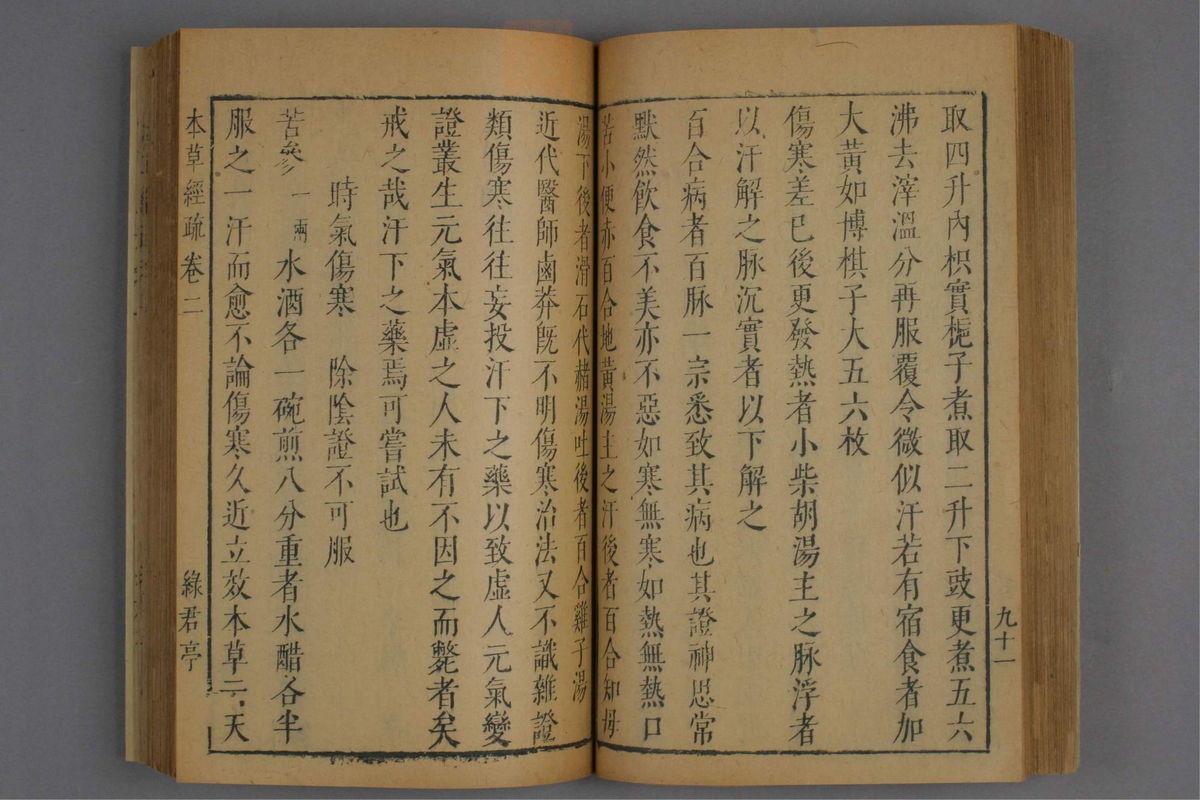 取四升內枳實梔子煮取二升下豉更煮五六
沸去滓溫分再服覆令微似汗若有宿食者加
大黃如博棋子大五六枚
傷寒差已後更發熱者小柴胡湯主之脉浮者
以汗解之脉沉實者以下解之
百合病者百脉一宗悉致其病也其證神思常
默然飲食不美亦不惡如寒無寒如熱無熱口
苦小便赤百合地黃湯主之汗後者百合知母
湯下後者滑石代赭湯吐後者百合雞子湯
近代醫師鹵莽旣不明傷寒治法又不識雜證
類傷寒往往妄投汗下之藥以致虛人元氣變
證叢生元氣本虛之人未有不因之而斃者矣
戒之哉汗下之藥焉可嘗試也
時氣傷寒　除陰證不可服
苦參一兩水酒各一碗煎八分重者水醋各半
服之一汗而愈不論傷寒久近立效本草云天
九十一
本草經疏卷二　綠君亭